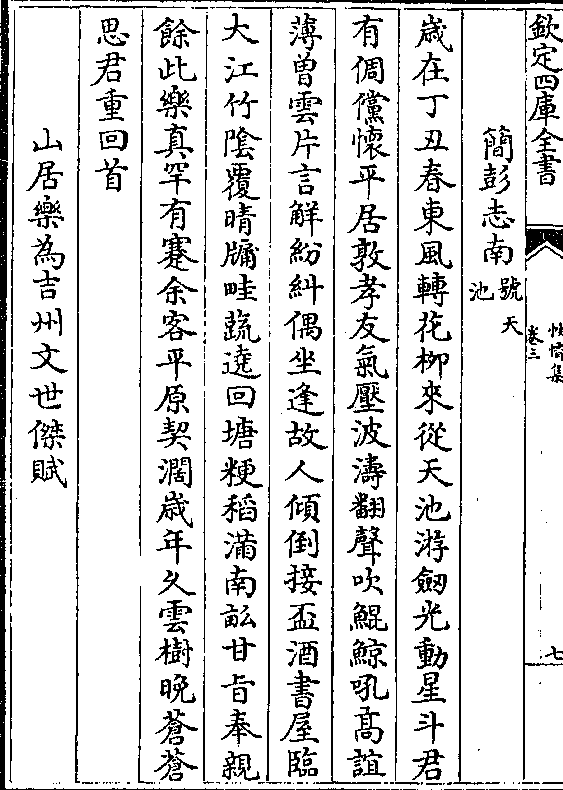 欽定四庫全書
卷三
七
簡彭志南號天池
歲在丁丑春東風轉花柳來從天池游劒光動星斗君
有倜儻懷平居敦孝友氣壓波濤翻聲吹鯤鯨吼髙誼
薄曾雲片言觧紛糾偶坐逢故人傾倒接盃酒書屋臨
大江竹陰覆晴牖畦蔬遶回塘粳稻滿南畝甘旨奉親
餘此樂真罕有蹇余客平原契濶歲年久雲樹晚蒼蒼
思君重回首
山居樂為吉州文世傑賦